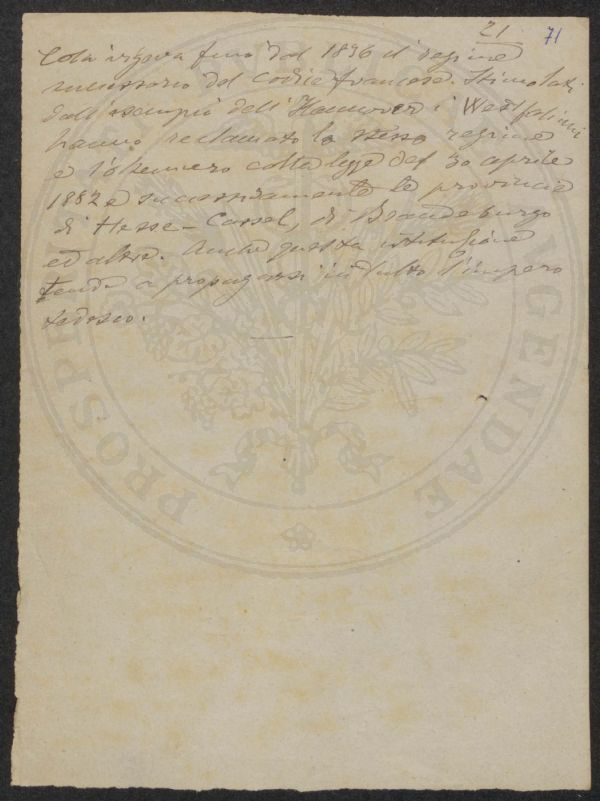 21 71
Cola vigeva fino dal 1836 il regime
successorio del codice francese. Stimolati
dall'esempio dell'Hannover i Westfaliani
hanno reclamato lo stesso regime
e l'ottennero colla legge del 30 aprile
1882 e successivamente le provincie
di Hesse-Cassel, di Brandeburgo
ed altre. Anche questa istituzione
tende a propagarsi in tutto l'impero
tedesco.
PROSPERITATI AUGENDAE